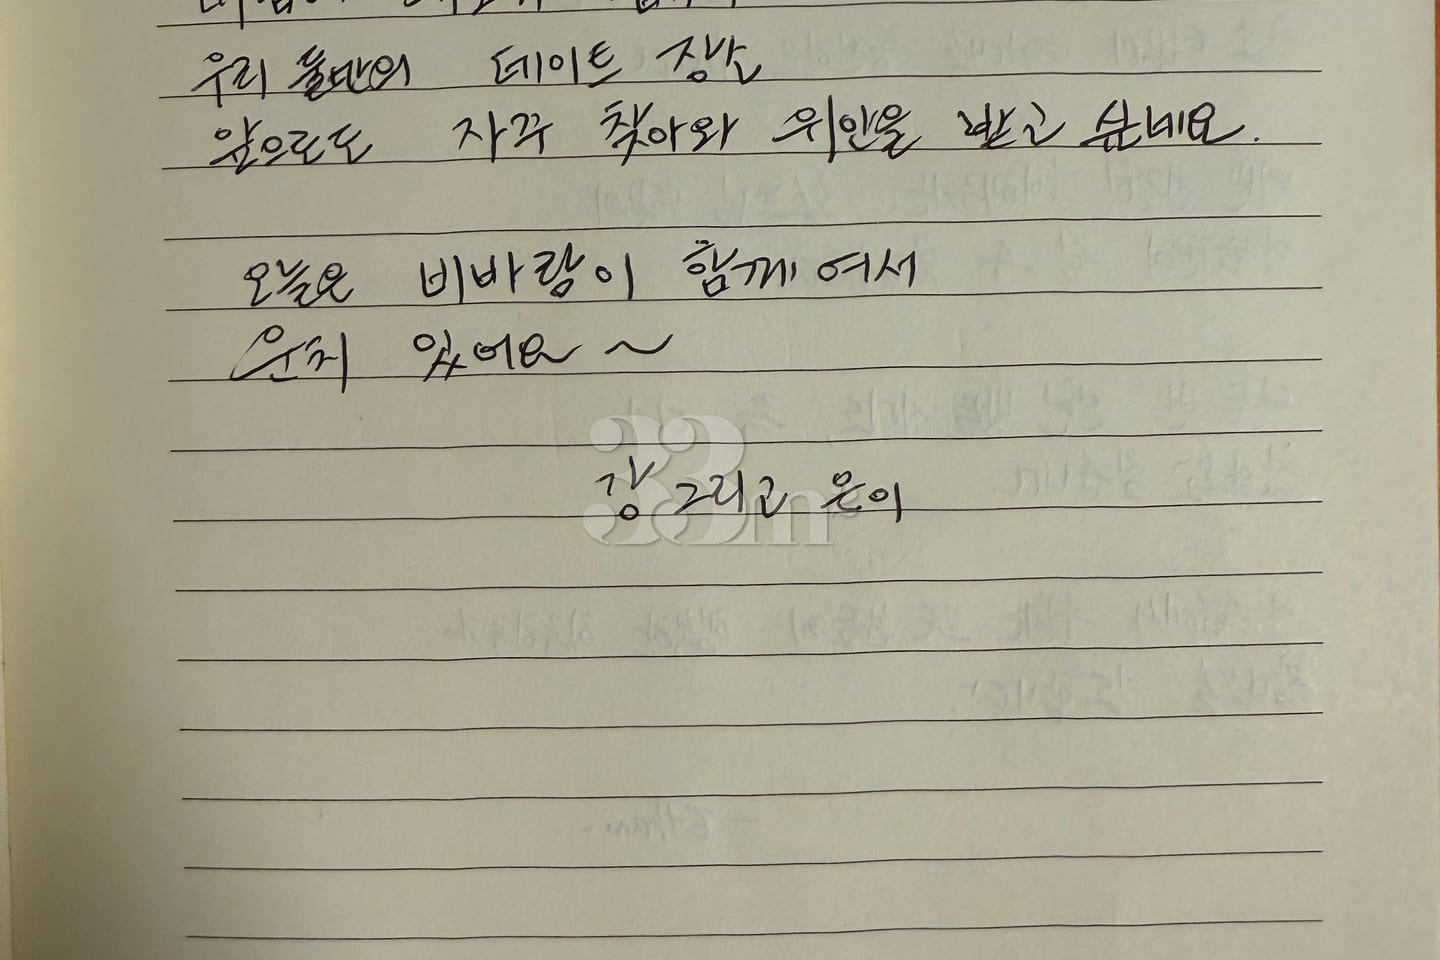 우리 둘만의 데이트 장소
앞으로도 자꾸 찾아와 위안을 받고 싶네요.
오늘은 비바람이 함께여서
운치 있어요~
강 그리고 은이
33m²